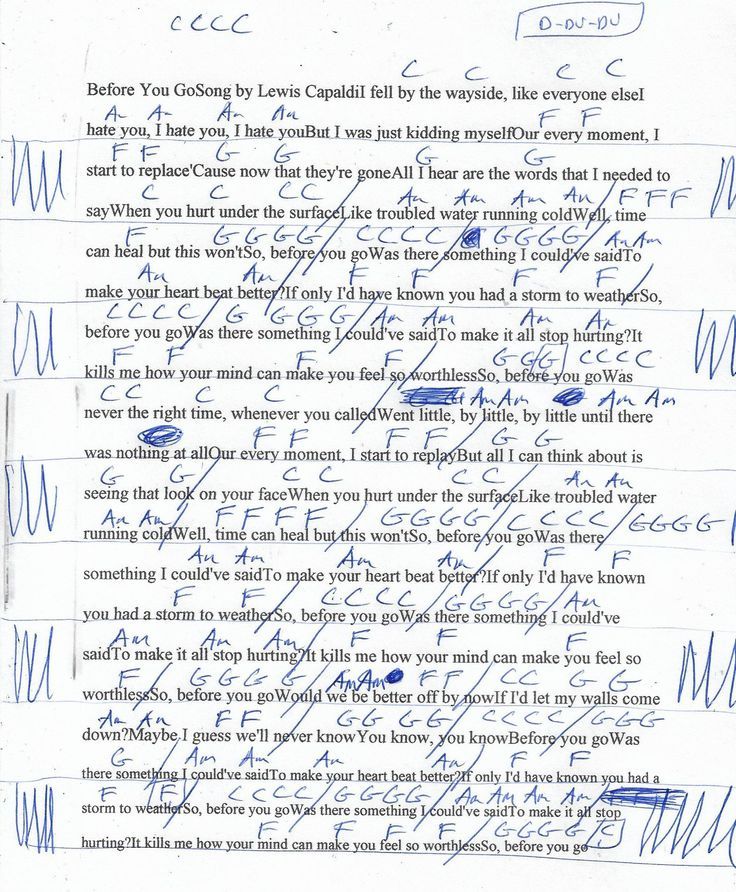 C C C C D-DU-DU
C C C C
Before You GoSong by Lewis CapaldiI fell by the wayside, like everyone elseI
Am Am Am Am F F
hate you, I hate you, I hate youBut I was just kidding myselfOur every moment, I
F F G G G G
start to replace'Cause now that they're goneAll I hear are the words that I needed to
C C C C / Am Am Am Am / F F F
sayWhen you hurt under the surfaceLike troubled water running coldWell, time
F / G G G G / C C C C / G G G G / Am Am
can heal but this won'tSo, before you goWas there something I could've saidTo
Am Am F F F F
make your heart beat better?If only I'd have known you had a storm to weatherSo,
C C C C / G G G G / Am Am Am Am
before you goWas there something I could've saidTo make it all stop hurting?It
F F F F / G G G C C C C
kills me how your mind can make you feel so worthlessSo, before you goWas
C C C C Am Am Am Am
never the right time, whenever you calledWent little, by little, by little until there
F F F F G G
was nothing at allOur every moment, I start to replayBut all I can think about is
G G C C C C / Am Am
seeing that look on your faceWhen you hurt under the surfaceLike troubled water
Am Am / F F F F / G G G G / C C C C / G G G G /
running coldWell, time can heal but this won'tSo, before you goWas there
Am Am Am Am F F
something I could've saidTo make your heart beat better?If only I'd have known
F F / C C C C / G G G G / Am
you had a storm to weatherSo, before you goWas there something I could've
Am Am Am F F F
saidTo make it all stop hurting?It kills me how your mind can make you feel so
F / G G G G / Am Am F F / C C G G
worthlessSo, before you goWould we be better off by nowIf I'd let my walls come
Am Am F F / G G G G / C C C C / G G G
down?Maybe I guess we'll never knowYou know, you knowBefore you goWas
G Am Am Am Am F F
there something I could've saidTo make your heart beat better?If only I'd have known you had a
F F / C C C C / G G G G / Am Am Am Am /
storm to weatherSo, before you goWas there something I could've saidTo make it all stop
F F F F / G G G G / C
hurting?It kills me how your mind can make you feel so worthlessSo, before you go